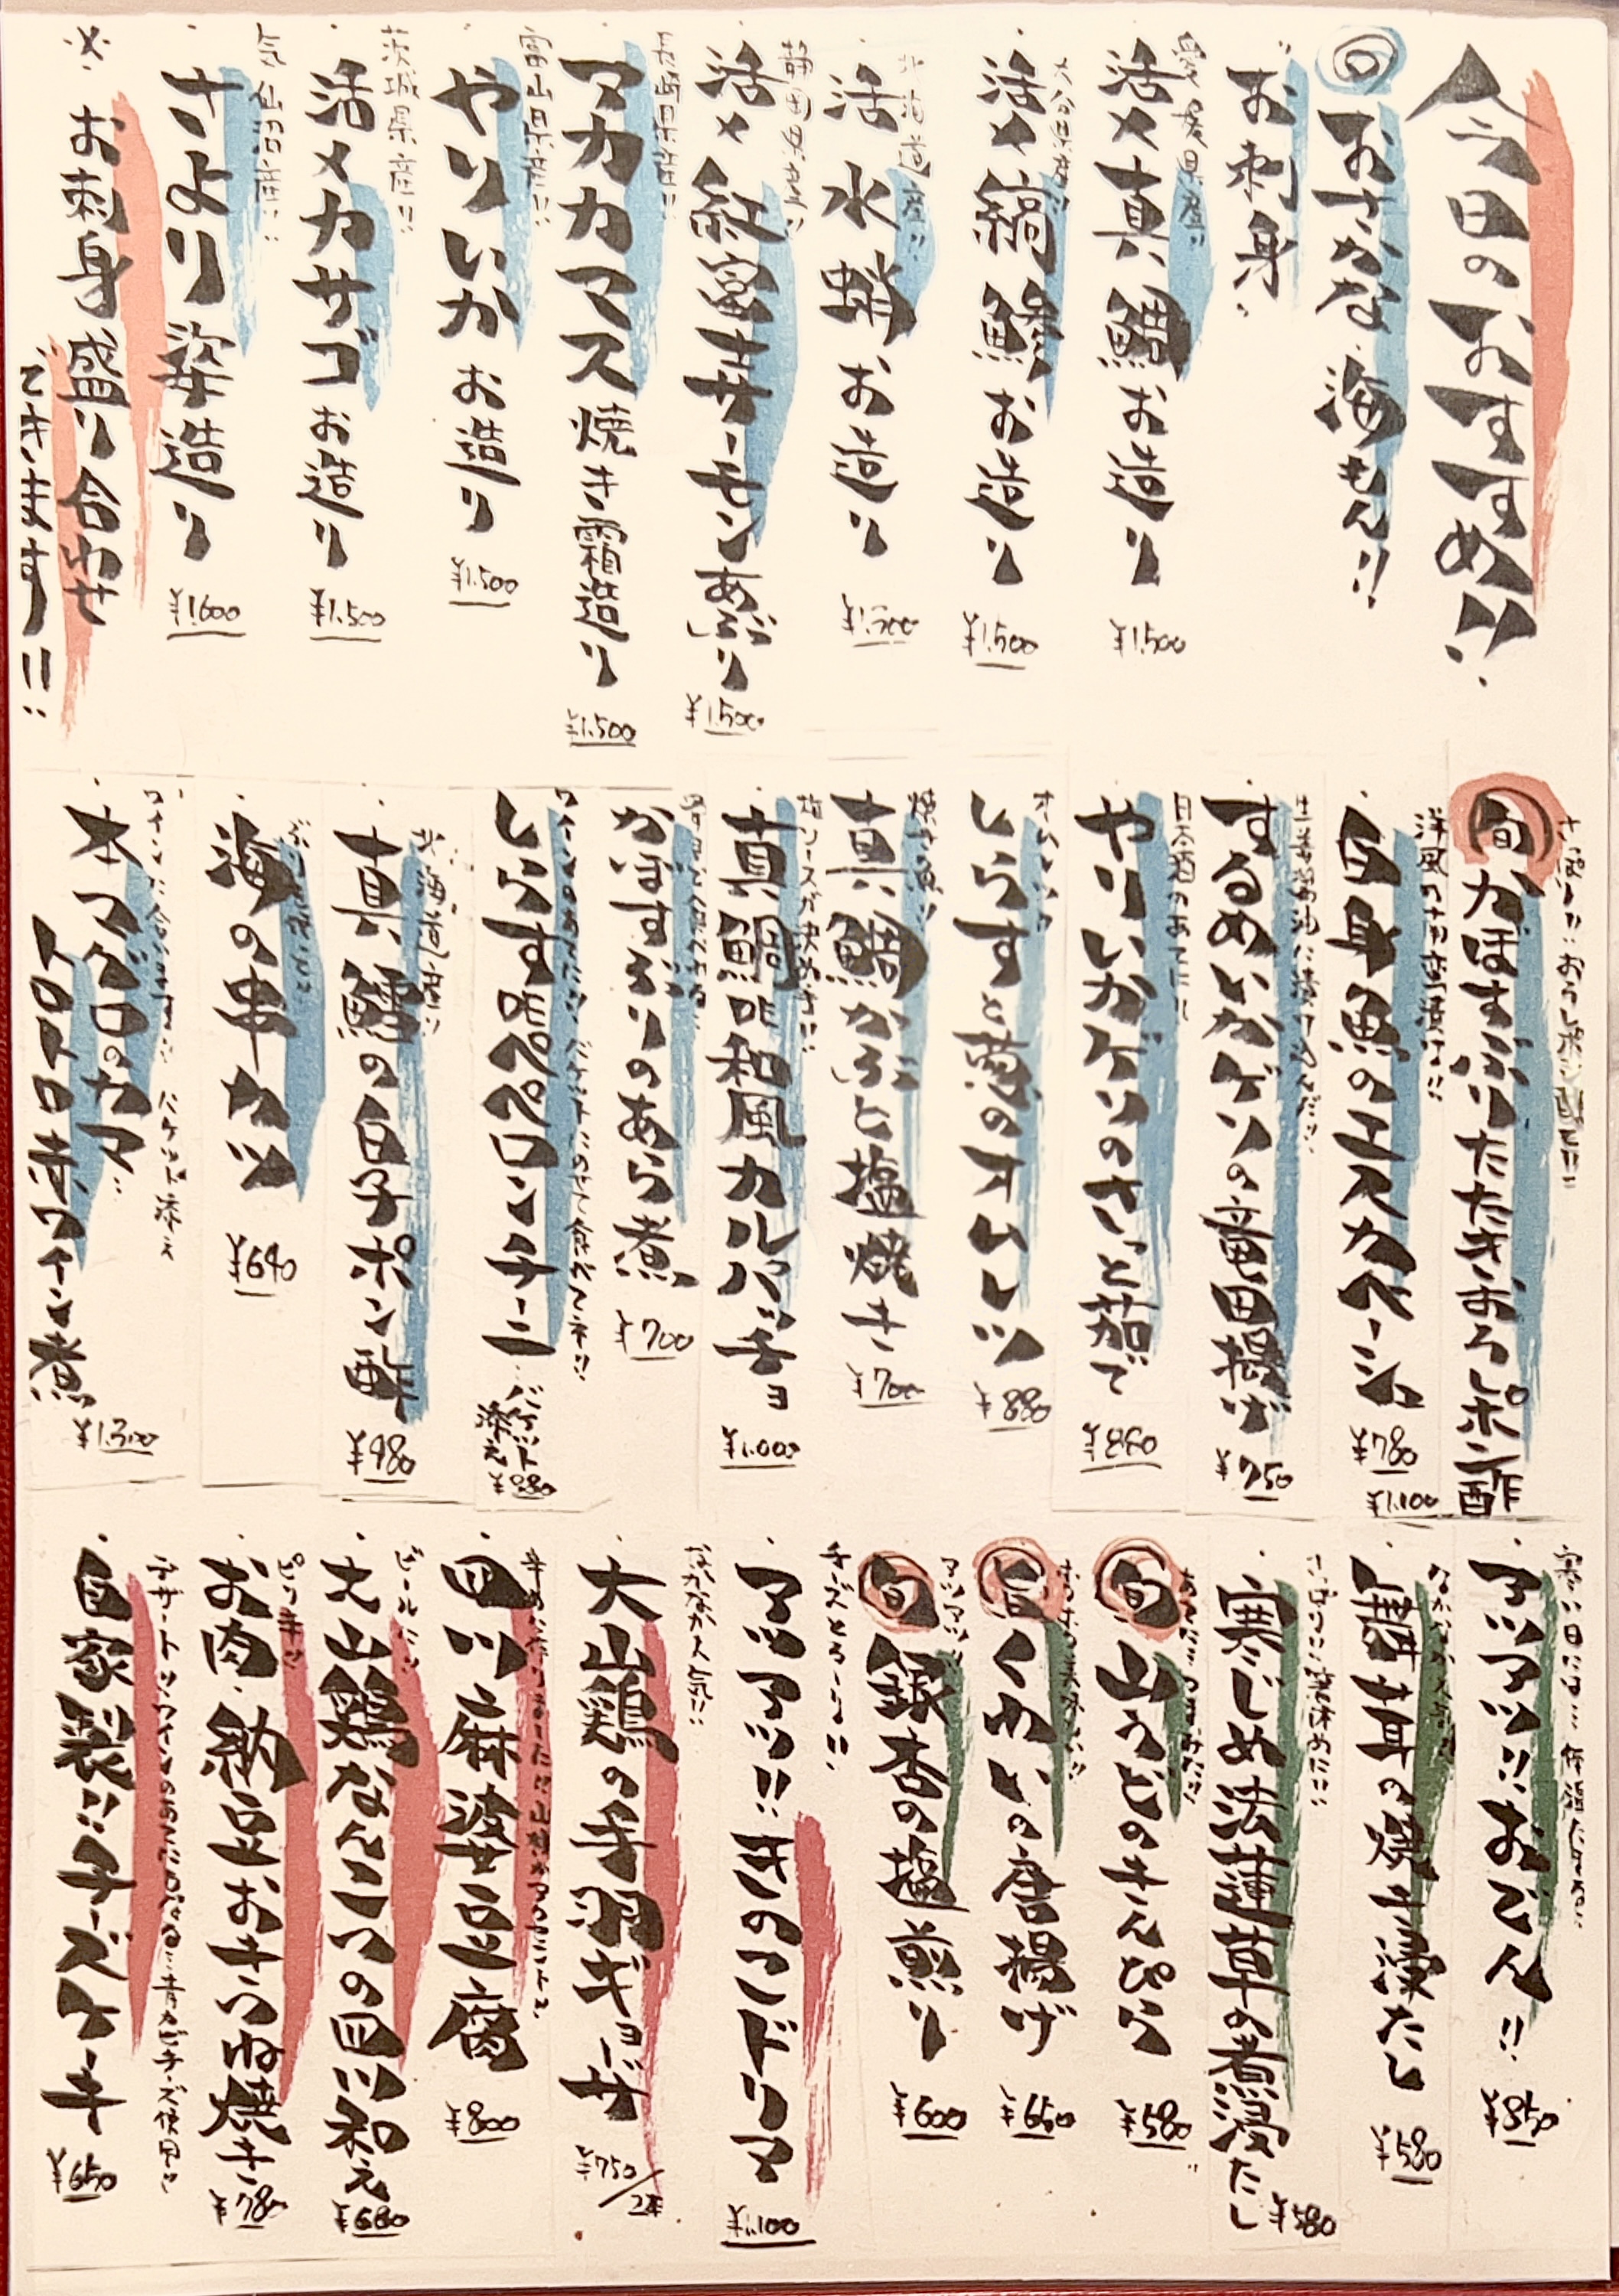 今日のおすすめ!!
旬 おさかな 海もん!!
お刺身
愛媛県産!!
活〆真鯛お造り
¥1.500
大分県産!!
活〆縞鯵お造り
¥1.500
北海道産!!
活水蛸お造り
静岡県産!!
活〆紅富士サーモンあぶり
¥1.500
長崎県産!!
アカカマス焼き霜造り
¥1.500
富山県産!!
やりいかお造り
¥1.500
茨城県産!!
活〆カサゴお造り
¥1.500
気仙沼産!!
さより姿造り
¥1.600
※お刺身盛り合わせ
できます!!
さっぱり!!おろしポン酢で!!
旬 かぽすぶりたたきおろしポン酢
¥1.100
洋風の南蛮漬け!!
白身魚のエスカベーシュ
¥780
生姜醤油に漬け込んで!!
するめいかゲソの竜田揚げ
¥750
日本酒のあてに!!
やりいかゲソのさっと茹で
しらすと葱のオムレツ
¥880
真鯛かぶと塩焼き
¥700
真鯛昨和風カルパッチョ
¥1.000
かぼすぶりのあら煮
¥700
しらす昨ペペロンチーニ
バケット
添え
¥880
北海道産!!
真鱈の白子ポン酢
¥980
海の串カツ
¥640
ワインに合います!! バケット添え
本マグロのカマ
トロトロ赤ワイン煮
¥1.300
アツアツ!!おでん!!
¥850
なかなか人気!!
舞茸の焼き浸たし
¥580
寒じめ法蓮草の煮浸たし
¥580
旬 山うどのきんぴら
¥580
旨 くわいの唐揚げ
¥650
旬 銀杏の塩煎り
¥600
チーズとろ〜り!!
アツアツ!!きのこドリア
¥1.100
なかなか人気!!
大山鶏の手羽ギョーザ
¥750/2本
四川麻婆豆腐
¥800
ビールに!!
大山鶏なんこつの四川和え
¥680
ピリ辛!!
お肉・納豆お きつね焼き
¥780
デザート!!ワインのあてに!! 青カビチーズ使用!!
自家製!!チーズケーキ
¥650